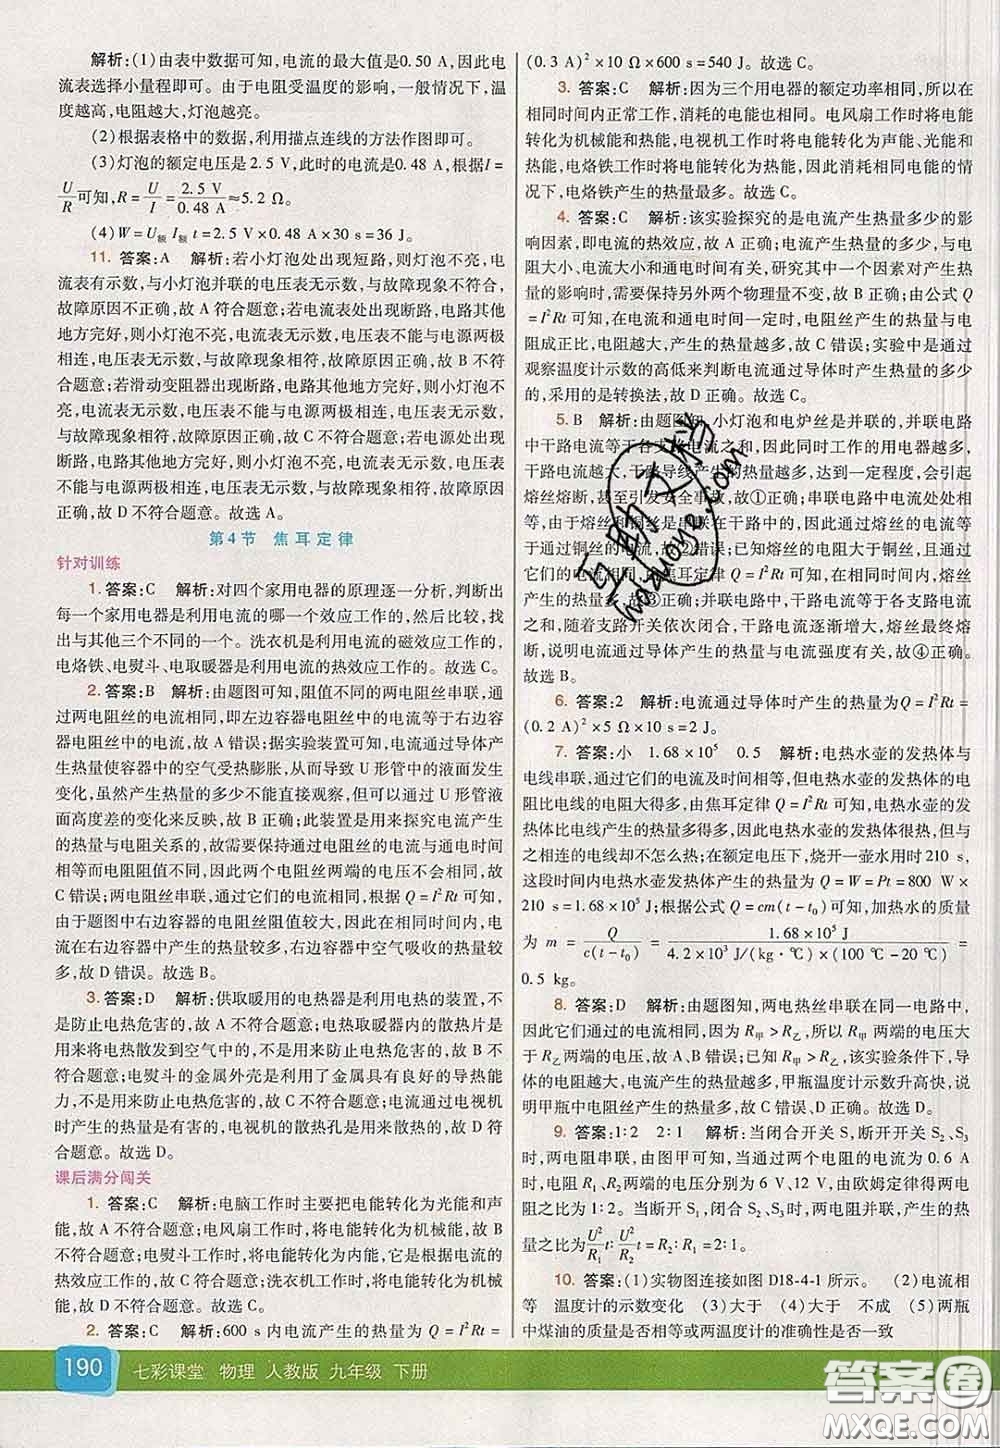 解析:(1)由表中数据可知,电流的最大值是0.50 A,因此电
流表选择小量程即可。由于电阻受温度的影响,一般情况下,温度
越高,电阻越大,灯泡越亮。
(2)根据表格中的数据,利用描点连线的方法作图即可。
(3)灯泡的额定电压是2.5 V,此时的电流是0.48 A,根据I=
U/R可知,R=U/I=2.5 V/0.48 A≈5.2 Ω。
(4)W=U额 I额 t=2.5 V×0.48 A×30 s=36 J。
11. 答案:A 解析:若小灯泡处出现短路,则灯泡不亮,电
流表有示数,与小灯泡并联的电压表无示数,与故障现象不符合,
故障原因不正确,故 A 符合题意;若电流表处出现断路,电路其他
地方完好,则小灯泡不亮,电流表无示数,电压表不能与电源两极
相连,电压表无示数,与故障现象相符,故障原因正确,故 B 不符
合题意;若滑动变阻器出现断路,电路其他地方完好,则小灯泡不
亮,电流表无示数,电压表不能与电源两极相连,电压表无示数,与
故障现象相符,故障原因正确,故 C 不符合题意;若开关处出现
断路,电路其他地方完好,则小灯泡不亮,电流表无示数,电压表不
能与电源两极相连,电压表无示数,与故障现象相符,故障原因正
确,故 D 不符合题意。故选 A。
第4节 焦耳定律
针对训练
1. 答案:C 解析:对四个家用电器的原理逐一分析,判断出
每一个家用电器是利用电流的哪一个效应工作的,然后比较,找
出与其三个不同的一个。洗衣机是利用电流的磁效应工作的,
电烙铁、电熨斗、电取暖器是利用电流的热效应工作的。故选 C。
2. 答案:B 解析:由题图可知,阻值不同的两电阻丝串联,通
过两电阻丝的电流相同,即左边容器电阻丝中的电流等于右边容
器电阻丝中的电流,故 A 错误;据实验装置可知,电流通过导体产
生热量使容器中的空气受热膨胀,从而导致 U 形管中的液面发生
变化,虽然产生热量的多少不能直接观察,但可以通过 U 形管液
面高度差的变化来反映,故 B 正确;此装置是用来探究电流产生
的热量与电阻关系的,需要控制电流和通电时间相同,因电流相同
而电阻不相等,所以两个电阻丝两端的电压不会相同,故
C 错误;两电阻丝串联,通过它们的电流相同,根据Q=I²Rt 可知,
由于题图中右边容器的电阻丝阻值较大,故在相同时间内,电
流在右边容器中产生的热量较多,右边容器中空气吸收的热量较
多,故 D 错误。故选 B。
3. 答案:D 解析:供取暖用的电热器是利用电热的装置,不
是防止电热危害的,故 A 不符合题意;电热取暖器中的散热片是
用来将电热散发到空气中的,不是用来防止电热危害的,故 B 不
符合题意;电熨斗的金属外壳是利用了金属具有良好的导热能
力,不是用来防止电热危害的,故 C 不符合题意;电流通过电视机
时产生的热量是有害的,电视机的散热孔是用来散热的,故 D 符
合题意。故选 D。
课后满分闯关
1. 答案:C 解析:电脑工作时主要把电能转化为光能和声
能,故 A 不符合题意;电风扇工作时,将电能转化为机械能,故 B
不符合题意;电熨斗工作时,将电能转化为内能,它是根据电流的
热效应工作的,故 C 符合题意;洗衣机工作时,将电能转化为机械
能,故 D 不符合题意。故选 C。
2. 答案:C 解析:600 s 内电流产生的热量为 Q=I²Rt=
(0.3 A)²×10 Ω×600 s=540 J。故选 C。
3. 答案:C 解析:因为三个用电器的额定功率相同,所以在
相同时间内正常工作,消耗的电能也相同。电风扇工作时将电能
转化为机械能和热能,电视机工作时将电能转化为声能、光能和
热能,电烙铁工作时将电能转化为热能,因此消耗相同电能的情
况下,电烙铁产生的热量最多。故选 C。
4. 答案:C 解析:该实验探究的是电流产生热量多少的影
响因素,即电流的热效应,故 A 正确;电流产生热量的多少,与电
阻、电流大小和通电时间有关,研究其中一个因素对产生热
量的影响时,需要保持另外两个物理量不变,故 B 正确;由公式 Q
=I²Rt 可知,在电流和通电时间一定时,电阻丝产生的热量与电
阻成正比,电阻越大,产生的热量越多,故 C 错误;实验中是通过
观察温度计示数的高低来判断电流通过导体时产生热量多少
的,采用的是转换法,故 D 正确。故选 C。
5. B 解析:由题图知,小灯泡和电炉丝是并联的,并联电路
中干路电流等于各支路电流之和,因此同时工作的用电器越多,
干路电流越大,干路导线产生的热量越多,达到一定程度,会引起
熔丝熔断,甚至引发安全事故,故①正确;串联电路中电流处处相
等,故②错误;已知熔丝的电阻大于铜丝,且通过熔丝的电流与铜
丝的电流相等,由焦耳定律 Q=I²Rt 可知,在相同时间内,熔丝
产生的热量多,故③正确;并联电路中,干路电流等于各支路电流
之和,随着支路开关依次闭合,干路电流逐渐增大,熔丝最终熔
断,说明电流通过导体产生的热量与电流强度有关,故④正确。
故选 B。
6. 答案:2 解析:电流通过导体时产生的热量为 Q=I²Rt=
(0.2 A)²×5 Ω×10 s=2 J。
7. 答案:小 1.68×10⁵ 0.5 解析:电热水壶的发热体与
电线串联,通过它们的电流及时间相等,但电热水壶的发热体的电
阻比电线的电阻大得多,由焦耳定律 Q=I²Rt 可知,电热水壶的发
热体比电线产生的热量多得多,因此电热水壶的发热体很热,但与
之相连的电线却不怎么热;在额定电压下,烧开一壶水用时 210 s,
这段时间内电热水壶发热体产生的热量为 Q=W=Pt=800 W×
210 s=1.68×10⁵ J;根据公式 Q=cm(t-t₀)可知,加热水的质量
为 m = Q/c(t-t₀) = 1.68×10⁵ J/4.2×10³ J/(kg·℃)×(100 ℃-20 ℃) =
0.5 kg。
8. 答案:D 解析:由题图知,两电热丝串联在同一电路中,
因此它们通过的电流相同。因为 R甲>R乙,所以甲两端的电压大
于 R乙两端的电压,故 A、B 错误;已知 R甲>R乙,该实验条件下,导
体的电阻越大,电流产生的热量越多,甲瓶温度计示数升高快,说
明甲瓶中电阻丝产生的热量多,故 C 错误、D 正确。故选 D。
9. 答案:1∶2 2∶1 解析:当闭合开关 S,断开开关 S₂、S₃
时,两电阻串联,由图甲可知,当通过电路中的电流为 0.6 A
时,电阻 R₁、R₂两端的电压分别为 6 V、12 V,由欧姆定律得两电
阻之比为 1∶2。当断开 S₁,闭合 S₂、S₃时,两电阻并联,产生的热
量之比为 U²/R₁ t∶U²/R₂ t=R₂∶R₁=2∶1。
10. 答案:(1)实物图连接如图 D18-4-1 所示。 (2)电流相
等 温度计的示数变化 (3)大于 (4)大于 不成 (5)两瓶
中煤油的质量是否相等或两温度计的准确性是否一致
190 七彩课堂 物理 人教版 九年级 下册
互助文档
hdzuoye.com
答案圈
MXQE.COM